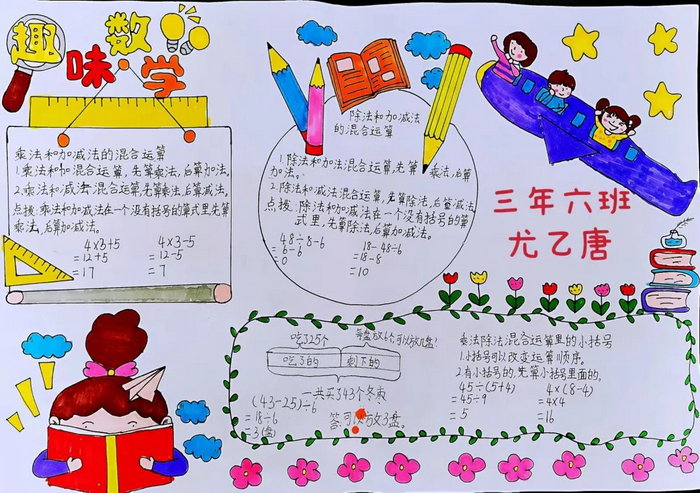 趣味数学
乘法和加减法的混合运算
1.乘法和加混合运算,先算乘法,后算加法。
2.乘法和减法混合运算,先算乘法,后算减法,
点拨:乘法和加减法在一个没有括号的算式里先算
乘法,后算加减法。
4×3+5
=12+5
=17
4×3-5
=12-5
=7
除法和加减法
的混合运算
1.除法和加法混合运算,先算乘法,后算
加法。
2.除法和减法混合运算,先算除法,后算减法
点拨:除法和加减法在一个没有括号的算
式里,先算除法,后算加减法。
48÷8-6
=6-6
=0
18-48÷6
=18-8
=10
三年六班
尤乙唐
吃了25个
每盘放6个,可以放几盘?
吃了的
剩下的
共买了43个冬枣
(43-25)÷6
=18÷6
=3(盘)
答:可以放3盘。
乘法除法混合运算里的小括号
1.小括号可以改变运算顺序。
2.有小括号的,先算小括号里面的。
45÷(5+4)
=45÷9
=5
4×(8-4)
=4×4
=16